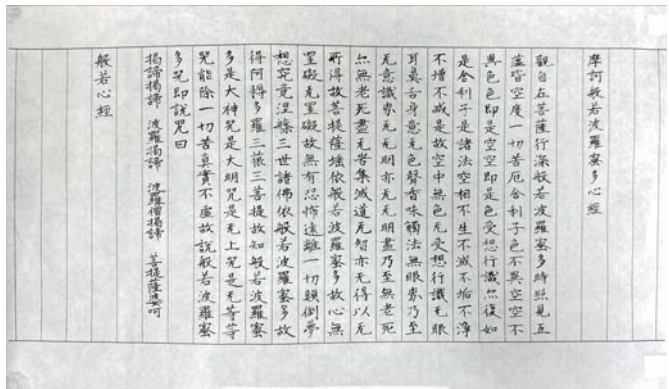 摩訶般若波羅蜜多心經
觀自在菩薩行深般若波羅蜜多時照見五
蘊皆空度一切苦厄舍利子色不異空空不
異色色即是空空即是色受想行識亦復如
是舍利子是諸法空相不生不滅不垢不淨
不增不減是故空中無色无受想行識无眼
耳鼻舌身意无色聲香味觸法無眼界乃至
无意識界无无明亦无无明盡乃至無老死
亦無老死盡无苦集滅道无智亦无得以无
所得故菩提薩埵依般若波羅蜜多故心無
罣礙无罣礙故無有恐怖遠離一切顛倒夢
想究竟涅槃三世諸佛依般若波羅蜜多故
得阿耨多羅三藐三菩提故知般若波羅蜜
多是大神咒是大明咒是无上咒是无等等
咒能除一切苦真實不虛故說般若波羅蜜
多咒即說咒曰
揭諦揭諦 波羅揭諦 波羅僧揭諦 菩提薩婆呵
般若心經